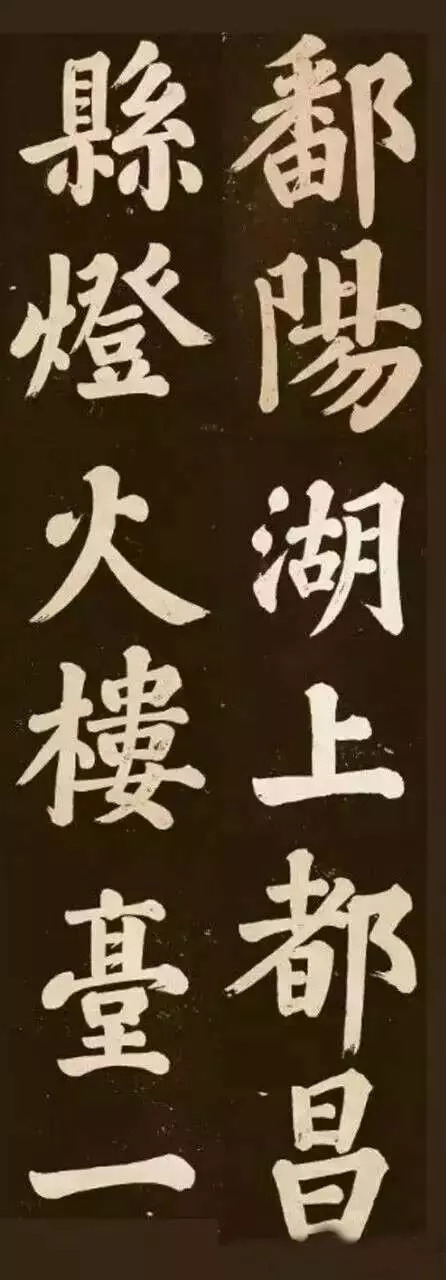 鄱陽湖上都昌
縣燈火樓臺一